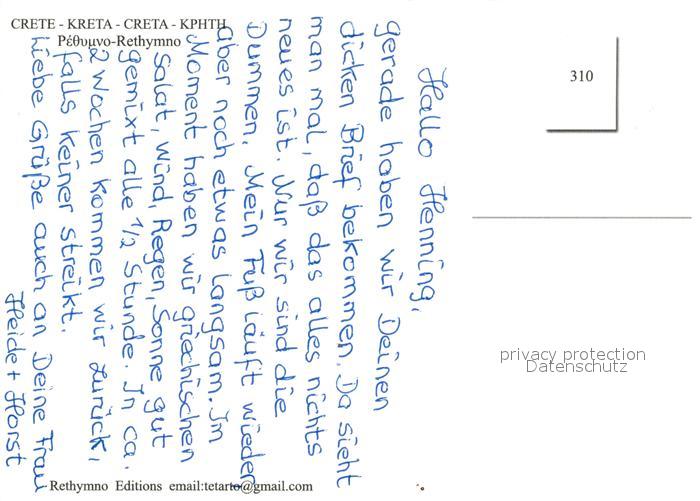 CRETE - KRETA - CRETA - ΚΡΗΤΗ
Ρέθυμνο-Rethymno
310
Hallo Henning,
gerade haben wir Deinen
dicken Brief bekommen. Da sieht
man mal, daß das alles nichts
neues ist. Nur wir sind die
Dummen. Mein Fuß läuft wieder
aber noch etwas langsam. Im
Moment haben wir griechischen
Salat, Wind, Regen, Sonne gut
gemixt alle 1/2 Stunde. In ca.
2 Wochen kommen wir zurück,
falls keiner streikt.
Liebe Grüße auch an Deine Frau
Heide + Horst
privacy protection
Datenschutz
Rethymno Editions email:tetarto@gmail.com